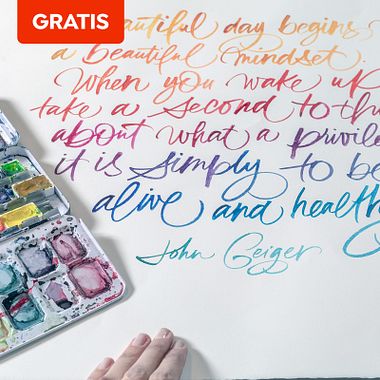 GRATIS
autiful day begins
a beautiful mindset.
When you wake up
take a second to thi
about what a privile
it is simply to be
alive and healthy
John Geiger